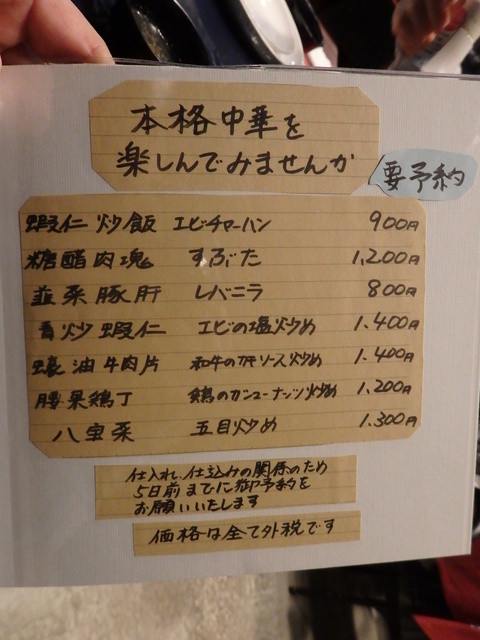 本格中華を
楽しんでみませんか
要予約
蝦仁炒飯 エビチャーハン 900円
糖醋肉塊 すぶた 1,200円
韮菜豚肝 レバニラ 800円
青炒蝦仁 エビの塩炒め 1.400円
蠔油牛肉片 和牛のカキソース炒め 1.400円
腰果鶏丁 鶏のカシューナッツ炒め 1.200円
八宝菜 五目炒め 1.300円
仕入れ、仕込みの関係のため
5日前までに御予約を
お願いいたします
価格は全て外税です